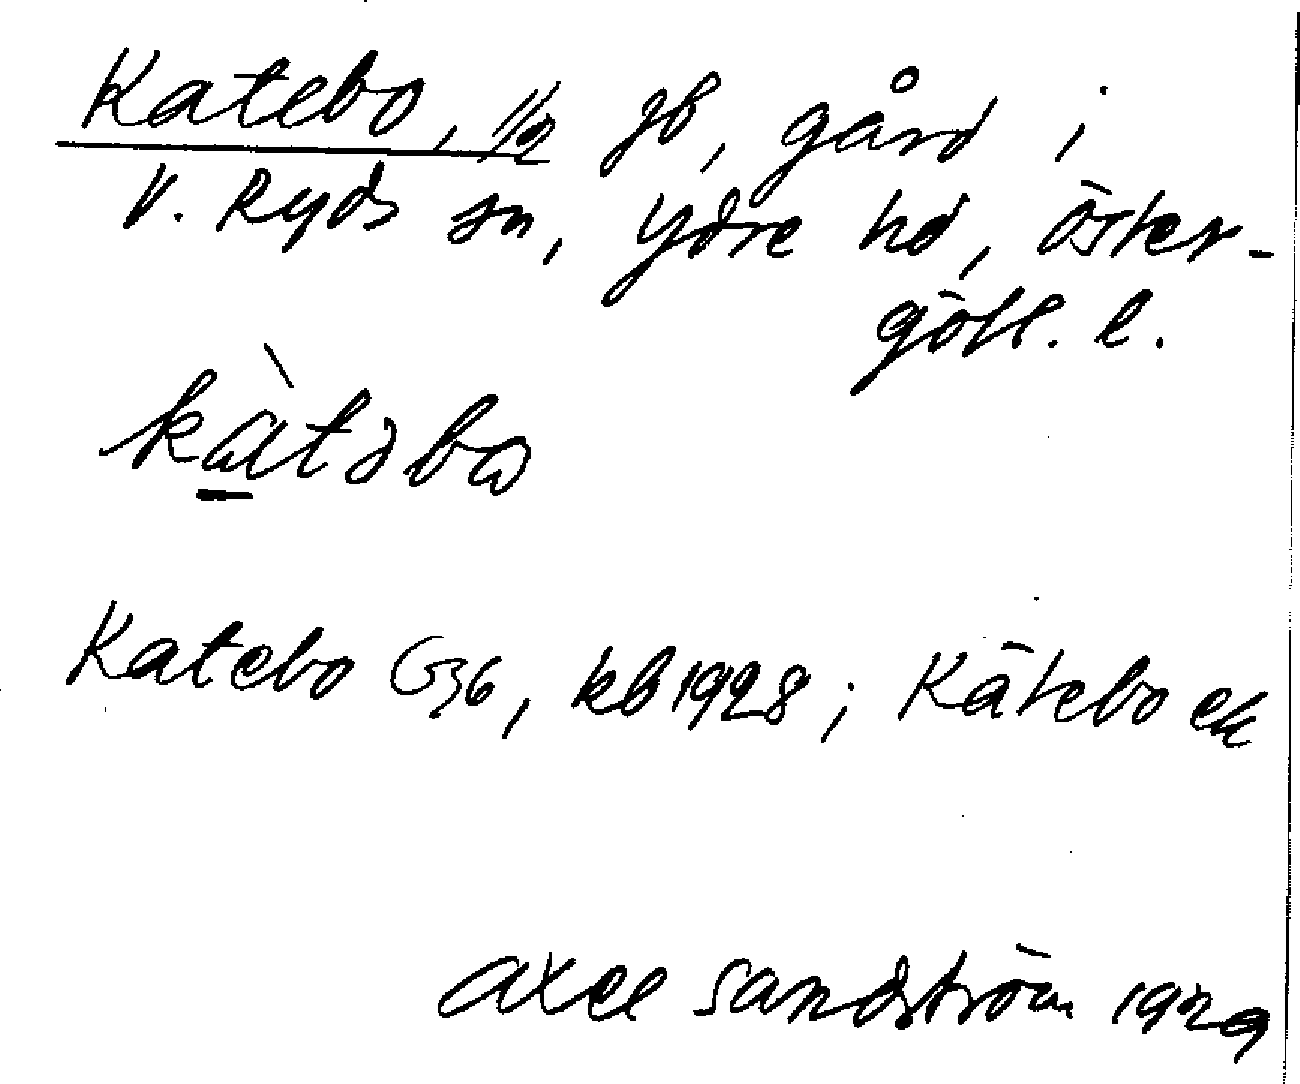 Katebo, 1/2 jb, gård i
V. Ryds sn, Ydre hd, Öster-
götl. l.
kàtəbo
Katebo G36, kb 1928; Kätebo ek
Axel Sandström 1929